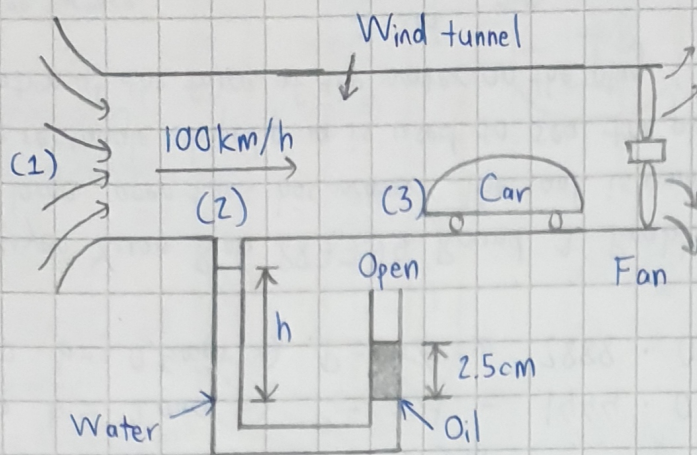 Wind tunnel
100km/h
(1)
(2)
(3)
Car
Open
Fan
h
2.5cm
Water
Oil